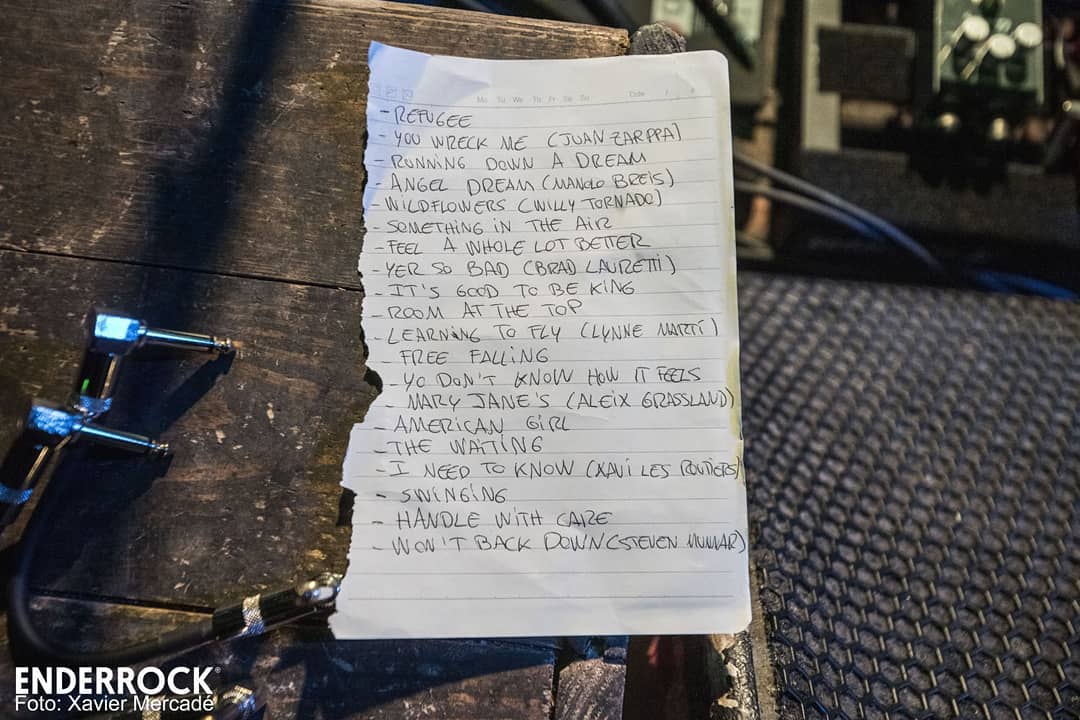 Mo Tu We Th Fr Sa Su Date / /
- REFUGEE
- YOU WRECK ME (JUAN ZARPPA)
- RUNNING DOWN A DREAM
- ANGEL DREAM (MANOLO BREIS)
- WILDFLOWERS (WILLY TORNADO)
- SOMETHING IN THE AIR
- FEEL A WHOLE LOT BETTER
- YER SO BAD (BRAD LAURETTI)
- IT'S GOOD TO BE KING
- ROOM AT THE TOP
- LEARNING TO FLY (LYNNE MARTÍ)
- FREE FALLING
- YO DON'T KNOW HOW IT FEELS
- MARY JANE'S (ALEIX GRASSLAND)
- AMERICAN GIRL
- THE WAITING
- I NEED TO KNOW (XAVI LES ROUTIERS)
- SWINGING
- HANDLE WITH CARE
- WON'T BACK DOWN (STEVEN MUNAR)
ENDERROCK®
Foto: Xavier Mercadé